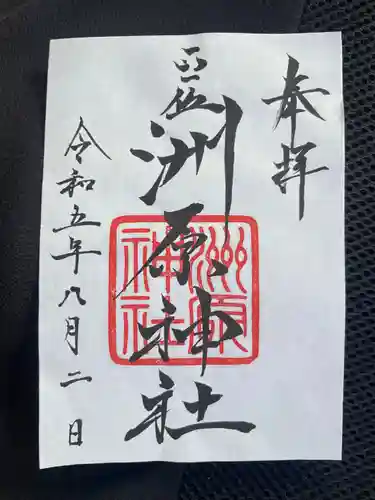 奉拝
正一位
洲原神社
洲原
神社
令和五年八月二日